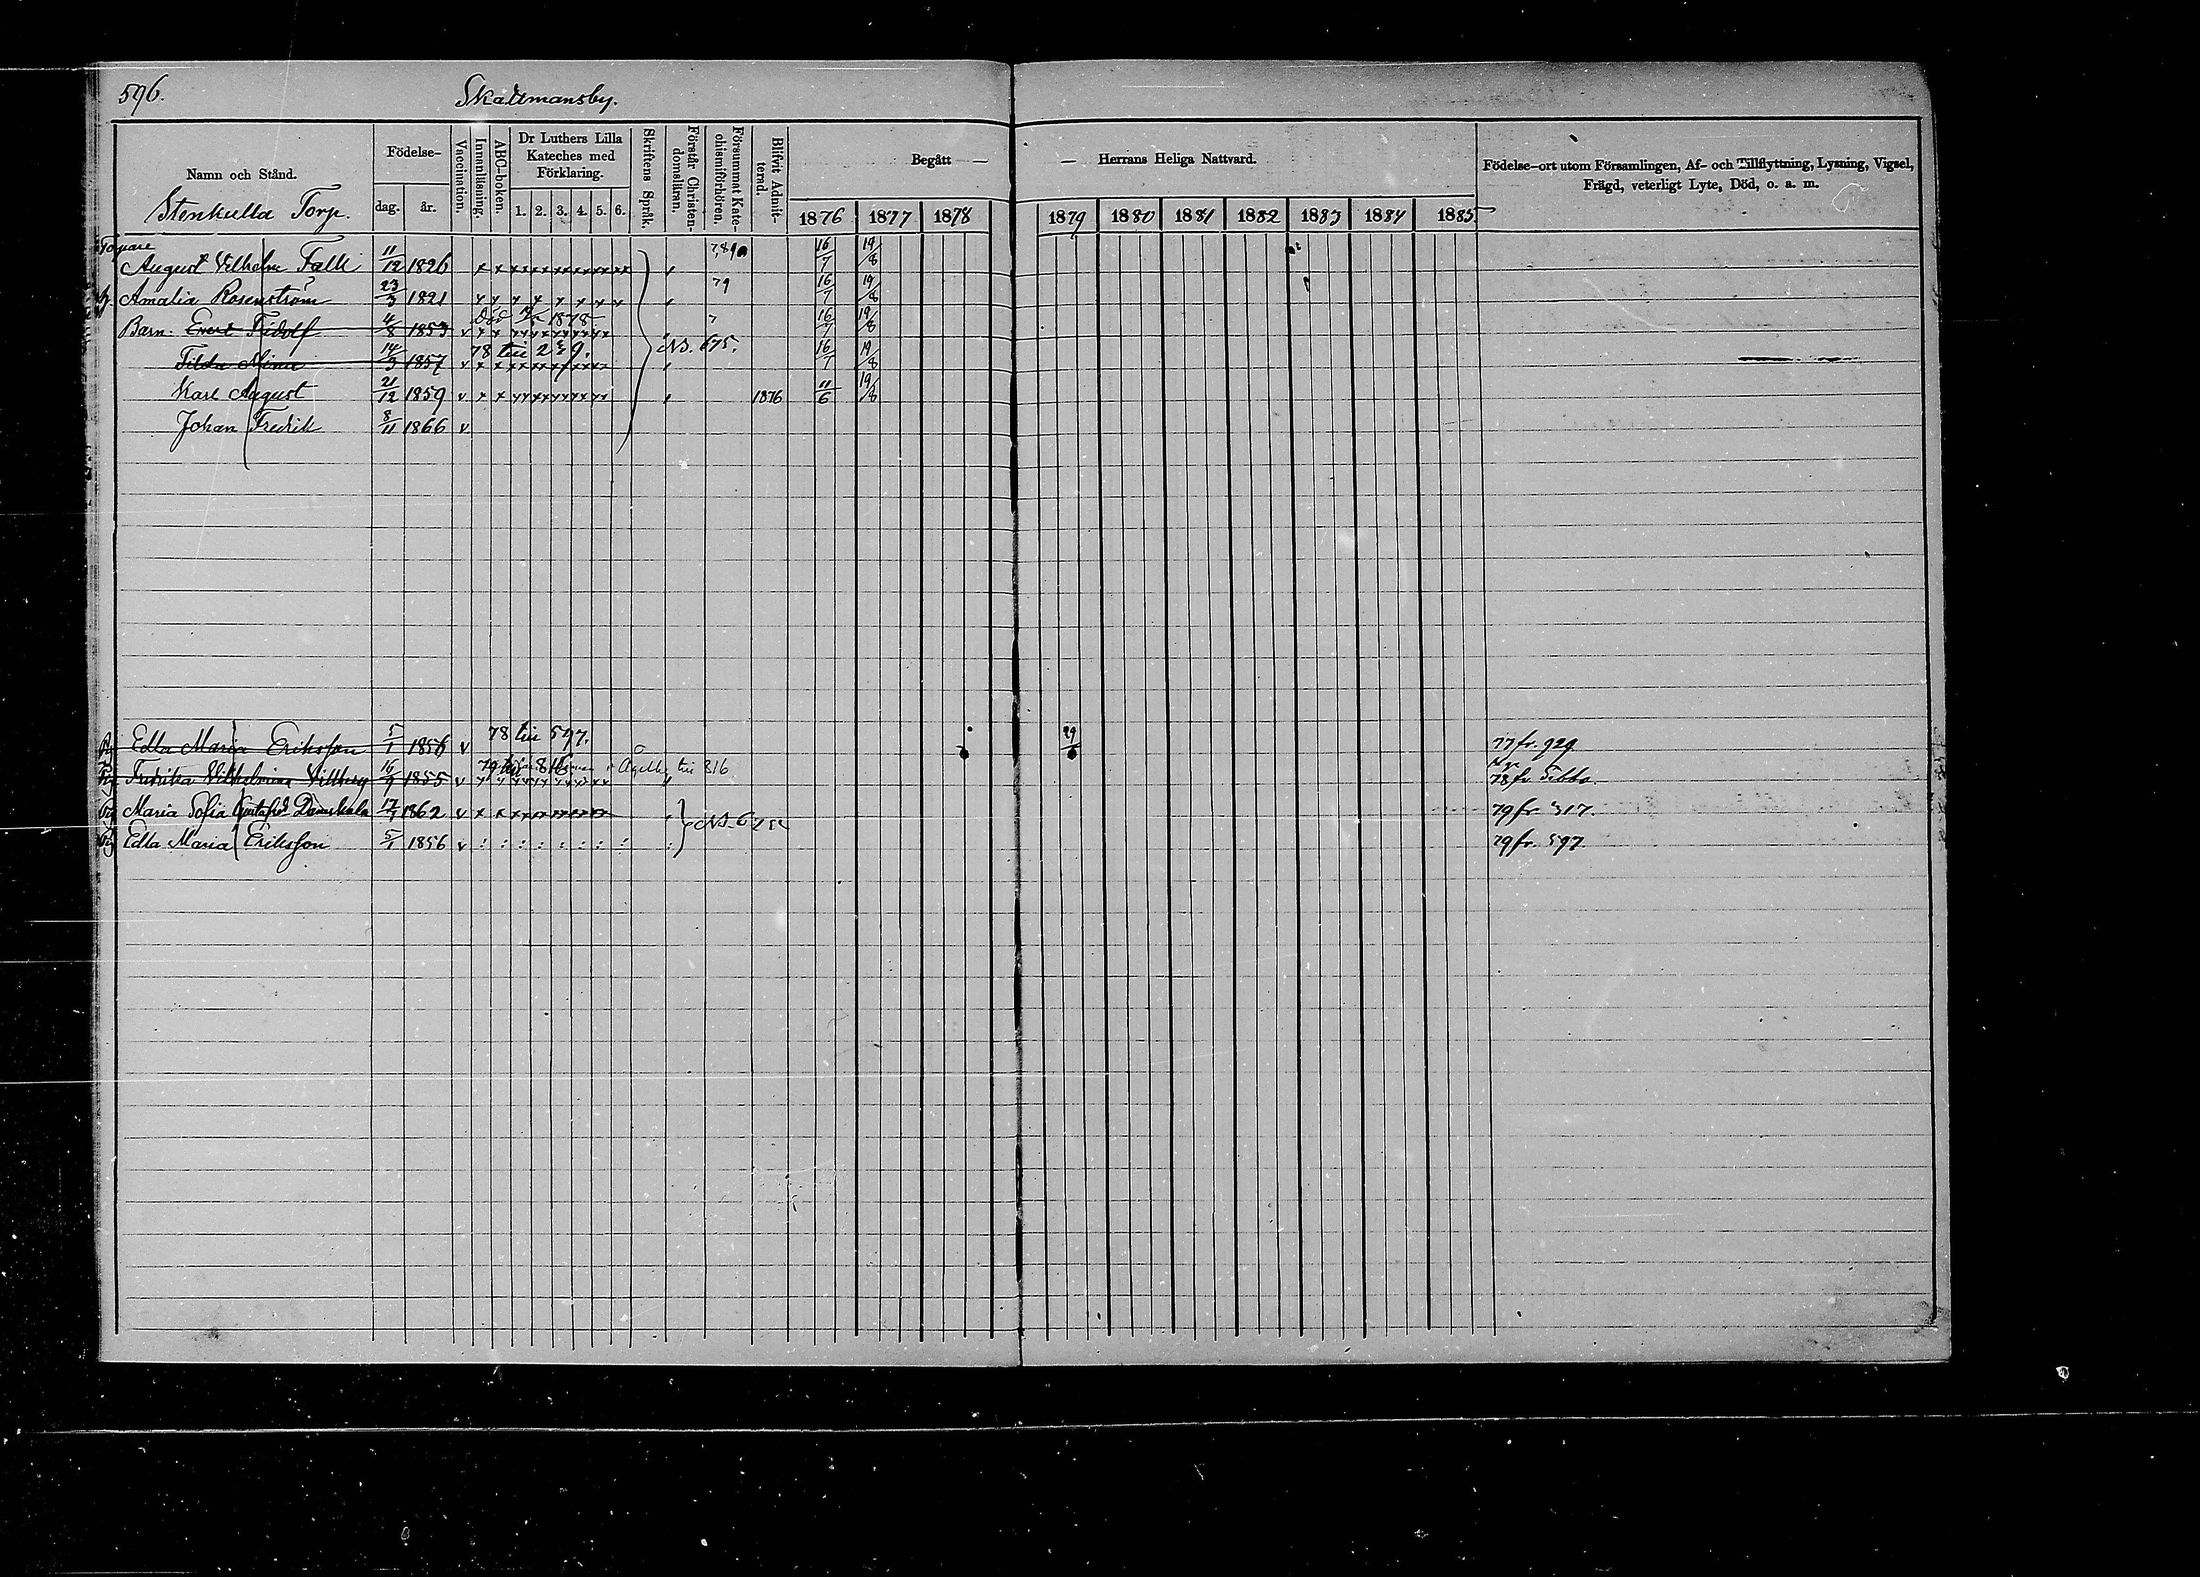 596. Skattmansby.
Namn och Stånd. Födelse- Vaccination. Innanläsning. ABC-boken. Dr Luthers Lilla Kateches med Förklaring. Skriftens Språk. Förstår Christendomsläran. Försummat Katechismiförhören. Blifvit Admitterad. Begått — — Herrans Heliga Nattvard. Födelse-ort utom Församlingen, Af- och Tillflyttning, Lysning, Vigsel, Frägd, veterligt Lyte, Död, o. a. m.
Stenkulla Torp. dag. år. 1. 2. 3. 4. 5. 6. 1876 1877 1878 1879 1880 1881 1882 1883 1884 1885
Torpare
August Vilhelm Falk 11/12 1826 x x x x x x x x x x 16/7 19/8
h Amalia Rosenström 23/3 1821 x x x x x x x x 79 16/7 19/8
Barn: Evert Fridolf 4/8 1853 v Död 1878 7 16/7 19/8
Tilda Mina 14/3 1857 v 78 till 239. N.S. 675. 16/7 19/8
Karl August 21/12 1859 v x x x x x x x x 1876 11/6 19/8
Johan Fredrik 8/11 1866 v
Edla Maria Eriksson 5/1 1856 v 78 till 597. 29/6 77 fr. 929
Fredrika Vilhelmina 16/9 1855 v 79 till 816 till 316 78 fr. Sibbo.
Maria Sofia Gustafsd. 17/7 1862 v x x x x x x x x N.S. 79 fr. 317.
Edla Maria Eriksson 5/1 1856 v : : : : : : : : 79 fr. 597.